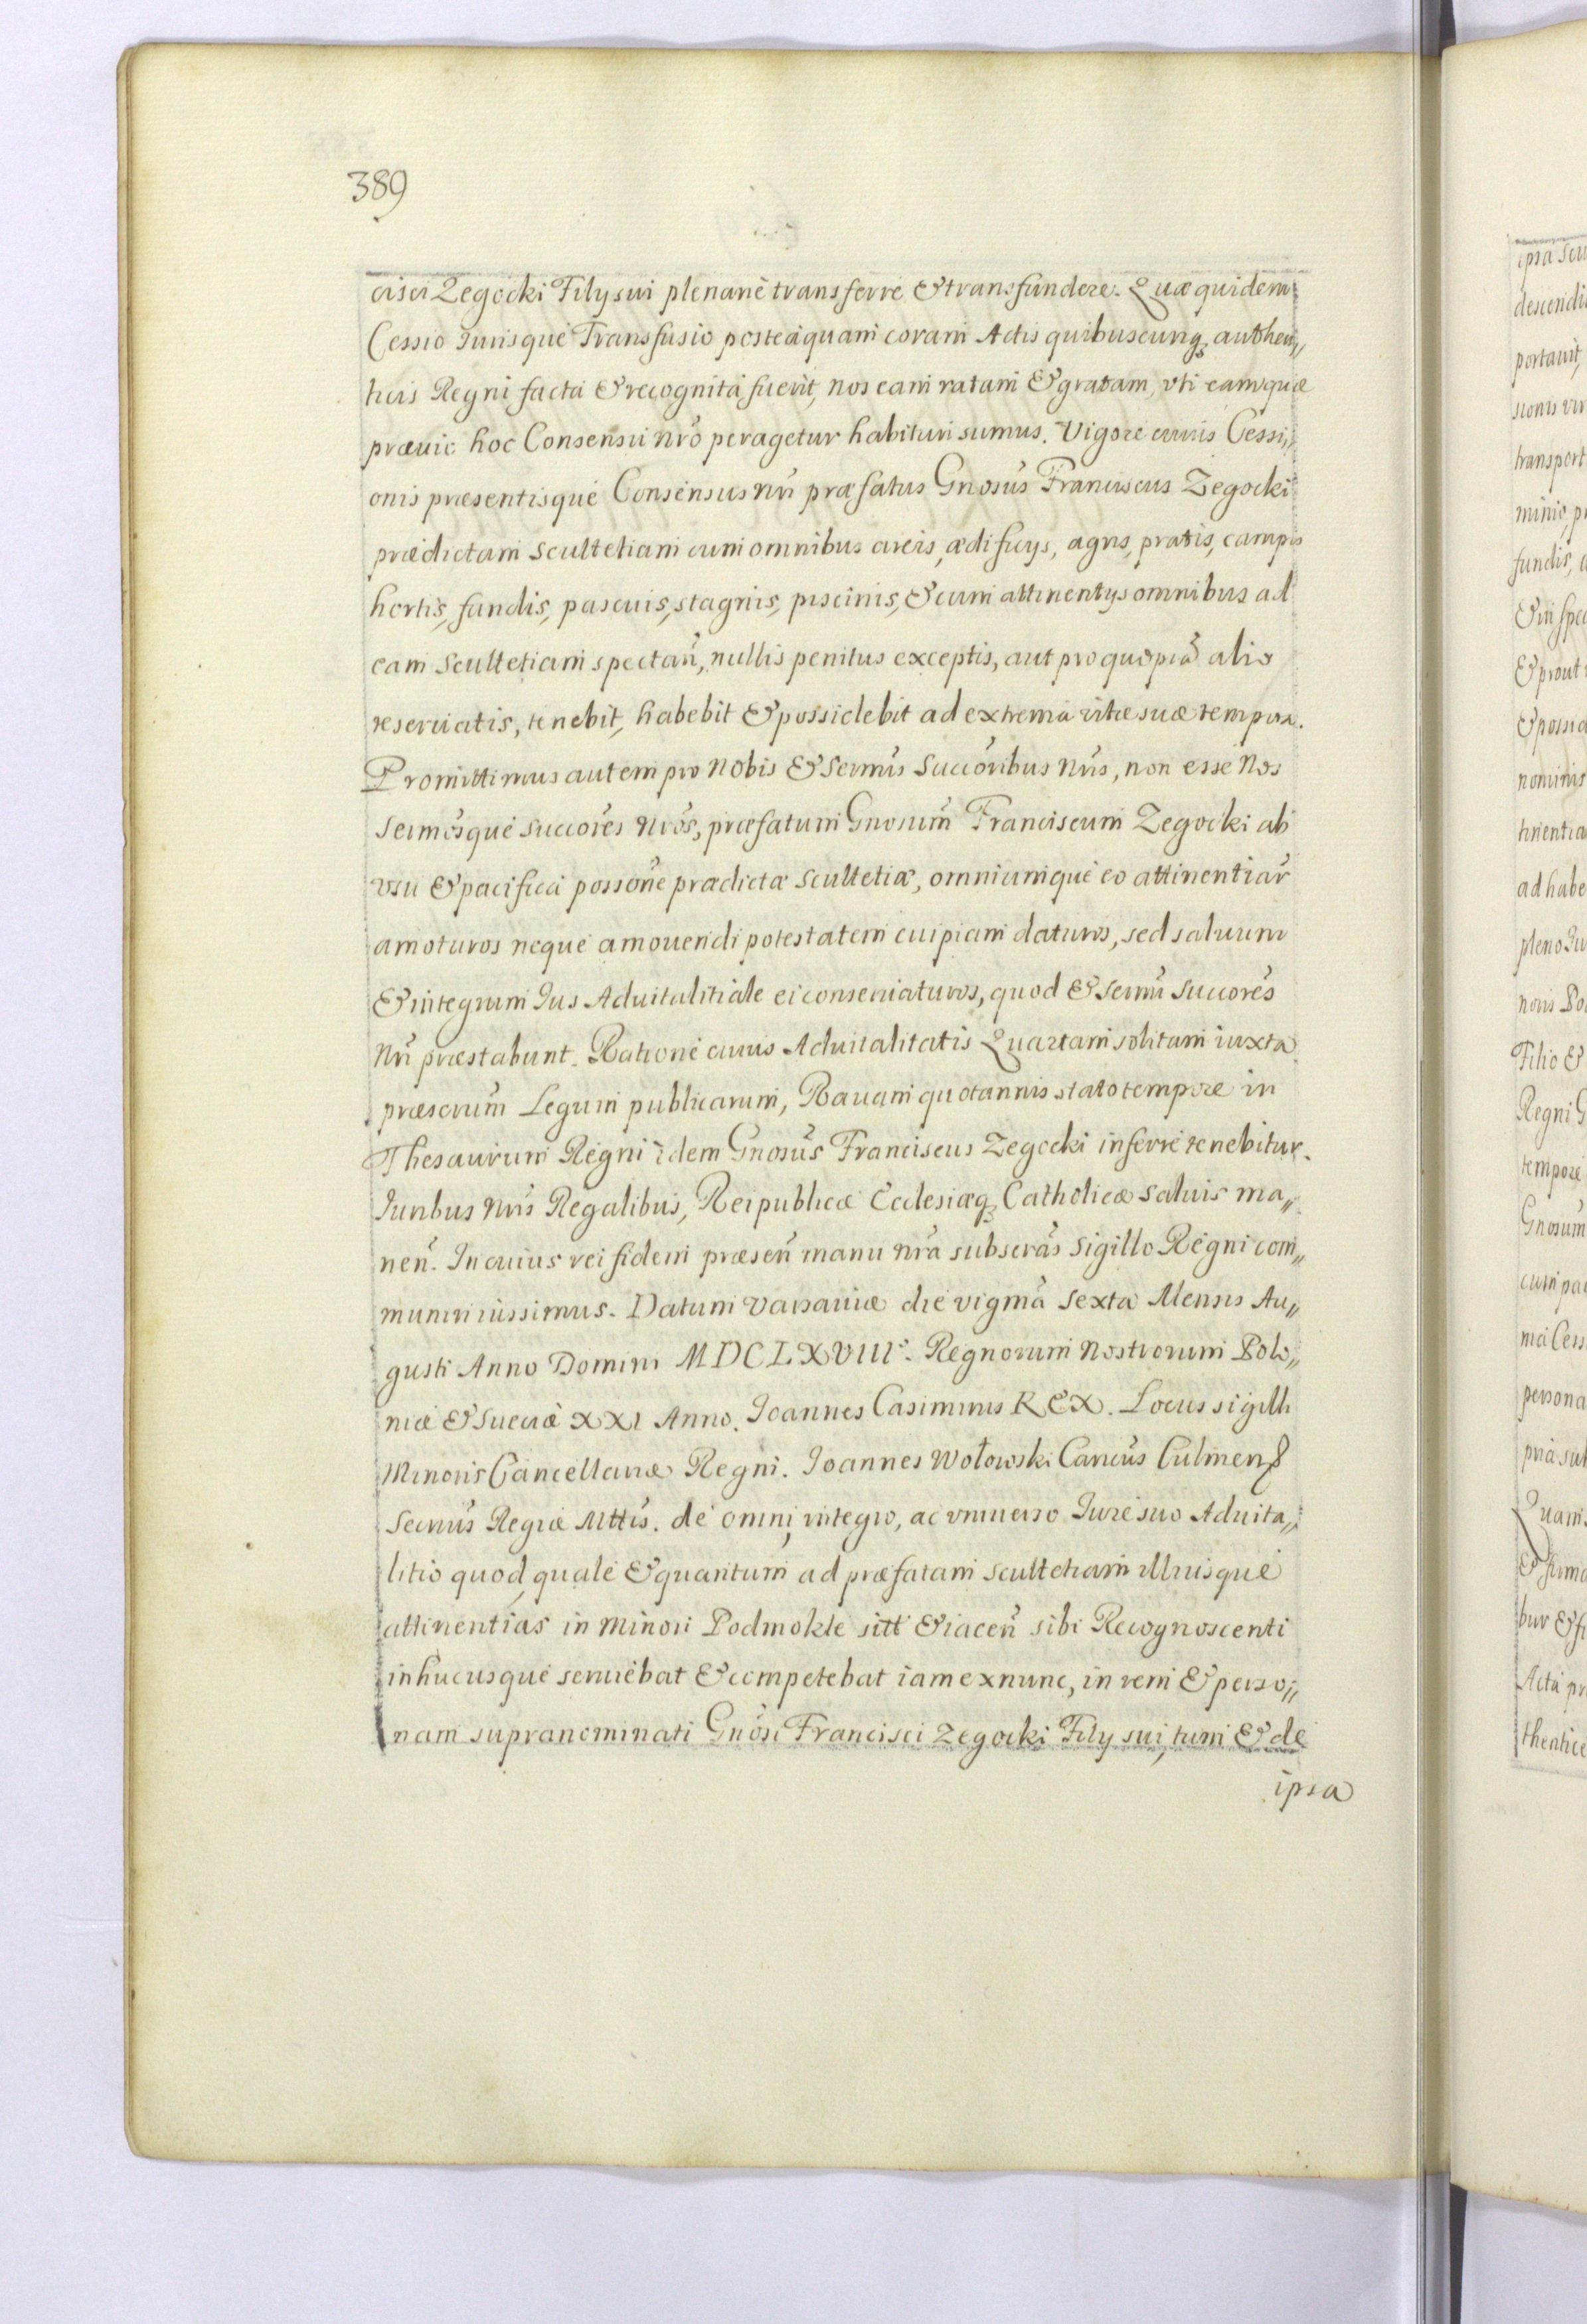 389
cisci Zegocki Filÿ sui plenarie transferre & transfundere. Quæ quidem
Cessio Iurisque Transfusio posteaquam coram Actis quibuscunq, authen„
ticis Regni facta & recognita fuerit, nos eam ratam & gratam, vti eamquæ
præuio hoc Consensu nrõ peragetur habituri sumus. Vigore cuius Cessi„
onis præsentisque Consensus nrĩ præfatus Gnosũs Franciscus Zegocki
prædictam scultetiam cum omnibus areis, ædificÿs, agris, pratis, campis
hortis, fundis, pascuis, stagnis, piscinis, & cum attinentÿs omnibus ad
eam scultetiam spectañ, nullis penitus exceptis, aut pro quopiã alio
reseruatis, tenebit, habebit & possidebit ad extrema vitæ suæ tempora.
Promittimus autem pro Nobis & sermĩs succoribus nrĩs, non esse Nos
sermosque succores nrõs, præfatum Gnosum Franciscum Zegocki ab
vsu & pacifica possone prædictæ scultetiæ, omniumque eo attinentiar
amoturos neque amouendi potestatem cuipiam daturos, sed saluum
& integrum Ius Aduitalitiale ei conseruaturos, quod & sermi succores
nrĩ præstabunt. Ratione cuius Aduitalitatis Quartam solitam iuxta
præscrum Legum publicarum, Rauam quotannis stato tempore in
Thesaurum Regni idem Gnosus Franciscus Zegocki inferre tenebitur.
Iuribus nrĩs Regalibus, Reipublicæ Ecclesiæq, Catholicæ saluis ma„
neñ. In cuius rei fidem præseñ manu nrã subscras sigillo Regni com„
muniri iussimus. Datum Varsauiæ die vigmã sexta Mensis Au„
gusti Anno Domini MDCLXVIII°. Regnorum Nostrorum Polo„
niæ & Sueciæ XXI Anno. Ioannes Casimirus REX. Locus sigilli
Minoris Cancellariæ Regni. Ioannes Wołowski Cancus Culmens
Secrius Regiæ Mttis. de omni, integro, ac vniuerso Iure suo Aduita„
litio quod, quale & quantum, ad præfatam scultetiam illiusque
attinentias in Minori Podmokle sitt & iaceñ sibi Recognoscenti
inhucusque seruiebat & competebat iam ex nunc, in rem & perso„
nam supranominati Gnosi Francisci Zegocki Filÿ sui, tum & de
ipsa